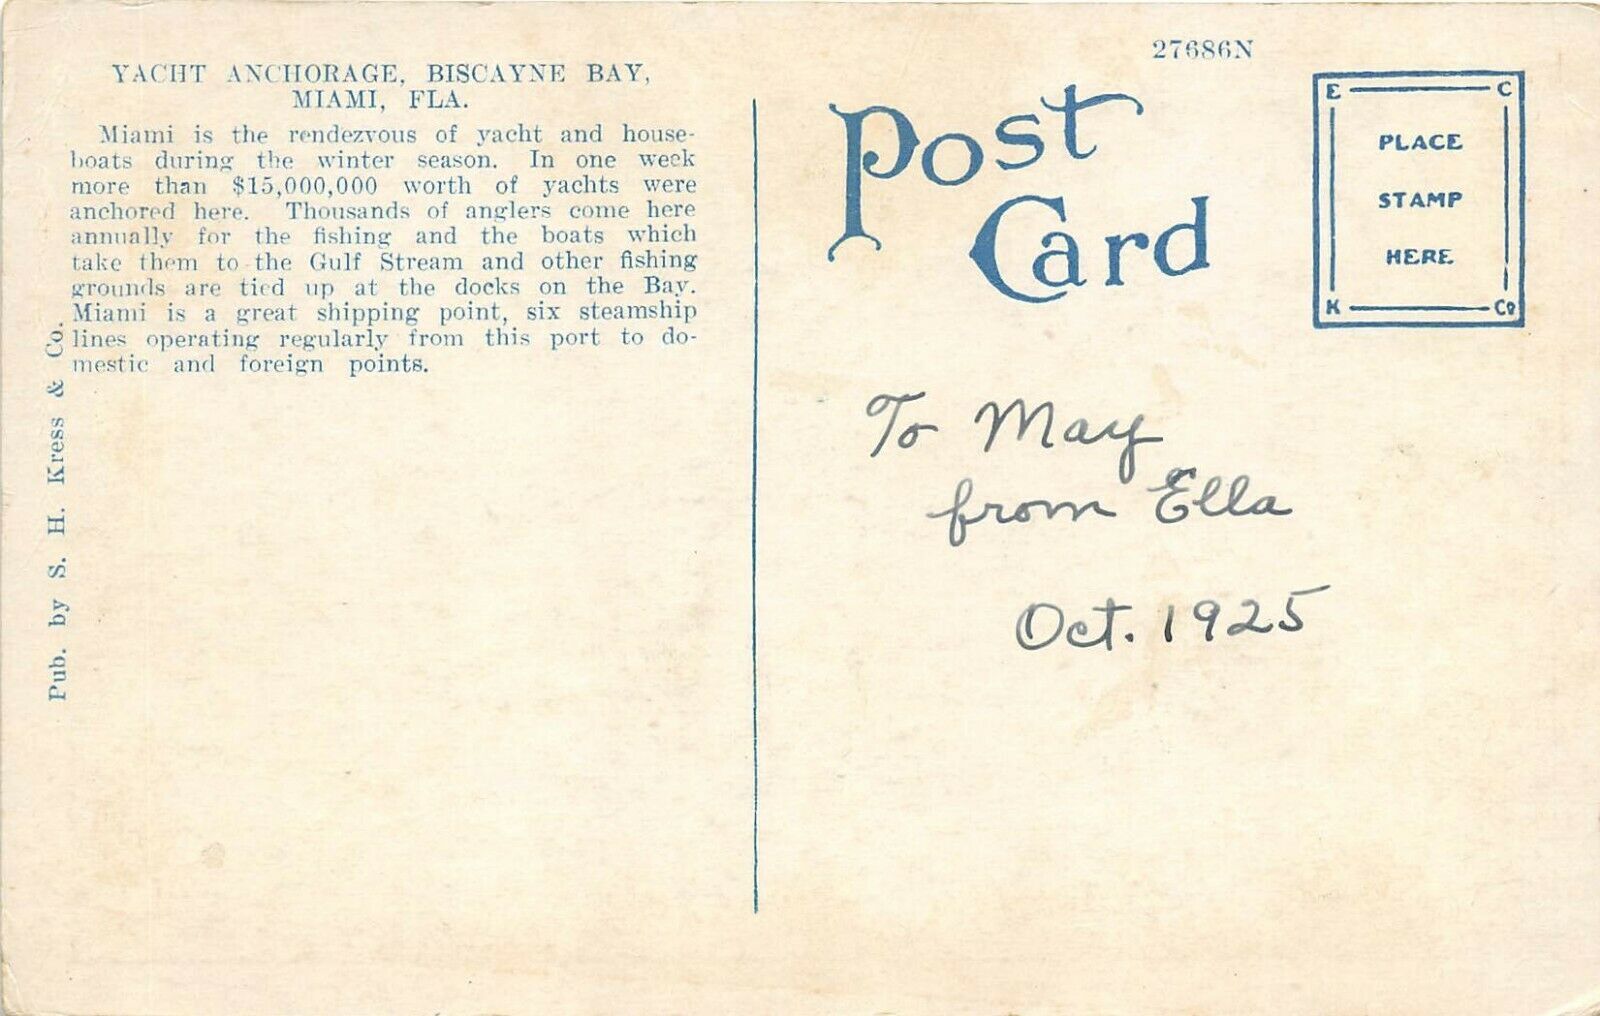 27686N
YACHT ANCHORAGE, BISCAYNE BAY,
MIAMI, FLA.
Miami is the rendezvous of yacht and house-
boats during the winter season. In one week
more than $15,000,000 worth of yachts were
anchored here. Thousands of anglers come here
annually for the fishing and the boats which
take them to the Gulf Stream and other fishing
grounds are tied up at the docks on the Bay.
Miami is a great shipping point, six steamship
lines operating regularly from this port to do-
mestic and foreign points.
Pub. by S. H. Kress & Co.
Post
Card
E C
PLACE
STAMP
HERE
K Co
To May
from Ella
Oct. 1925